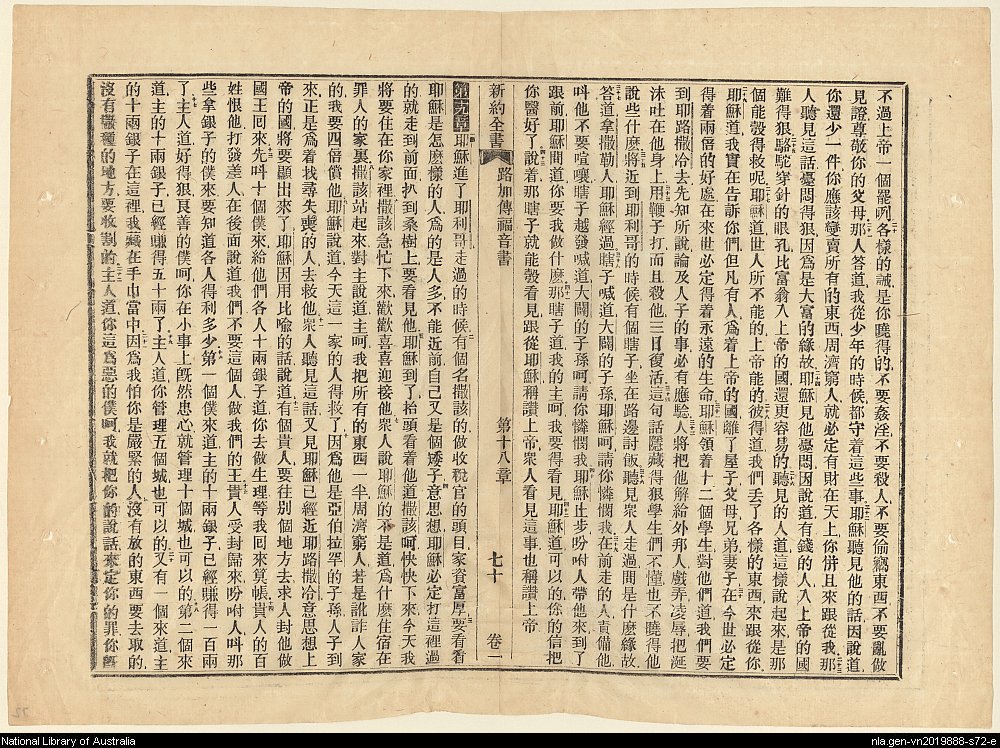 不過上帝一個罷咧各樣的誡是你曉得的不要姦淫不要殺人不要偷竊東西不要亂做
見證尊敬你的父母那人答道我從少年的時候都守着這些事耶穌聽見他的話因說道
你還少一件你應該變賣所有的東西周濟窮人就必定有財在天上你併且來跟從我那
人聽見這話憂悶得狠因爲是大富的緣故耶穌見他憂悶因說道有錢的人入上帝的國
難得狠駱駝穿針的眼孔比富翁入上帝的國還更容易的聽見的人道這樣說起來是那
個能彀得救呢耶穌道世人所不能的上帝能的彼得道我們丟了各樣的東西來跟從你
耶穌道我實在告訴你們但凡有人爲着上帝的國離了屋子父母兄弟妻子在今世必定
得着兩倍的好處在來世必定得着永遠的生命耶穌領着十二個學生對他們道我們要
到耶路撒冷去先知所說論及人子的事必有應驗人將把他解給外邦人戲弄凌辱把涎
沫吐在他身上用鞭子打而且殺他三日復活這句話隱藏得狠學生們不懂也不曉得他
說些什麽將近到耶利哥的時候有個瞎子坐在路邊討飯聽見衆人走過問是什麽緣故
答道拿撒勒人耶穌經過瞎子喊道大闢的子孫耶穌呵請你憐憫我在前走的人責備他
呌他不要喧嚷瞎子越發喊道大闢的子孫呵請你憐憫我耶穌止步吩咐人帶他來到了
跟前耶穌問道你要我做什麽那瞎子道我的主呵我要得看見耶穌道可以的你的信把
你醫好了說着那瞎子就能彀看見跟從耶穌稱讚上帝衆人看見這事也稱讚上帝
新約全書 路加傳福音書 第十八章 七十 卷一
第十九章耶穌進了耶利哥走過的時候有個名撒該的做收稅官的頭目家資富厚要看看
耶穌是怎麽樣的人爲的是人多不能近前自己又是個矮子意思想耶穌必定打這裡過
的就走到前面扒到桑樹上要看見他耶穌到了抬頭看着他道撒該呵快快下來今天我
將要住在你家裡撒該急忙下來歡歡喜喜迎接他衆人說耶穌的不是道爲什麽住宿在
罪人的家裏撒該站起來對主說道主呵我把所有的東西一半周濟窮人若是訛詐人家
的我要四倍償他耶穌說道今天這一家的人得救了因爲他是亞伯拉罕的子孫人子到
來正是爲着找尋失喪的人去救他衆人聽見這話又見耶穌已經近耶路撒冷意思想上
帝的國將要顯出來了耶穌因用比喩的話說道有個貴人要往別個地方去求人封他做
國王回來先呌十個僕來給他們各人十兩銀子道你去做生理等我回來算帳貴人的百
姓恨他打發差人在後面說道我們不要這個人做我們的王貴人受封歸來吩咐人呌那
些拿銀子的僕來要知道各人得利多少第一個僕來道主的十兩銀子已經賺得一百兩
了主人道好得狠良善的僕呵你在小事上旣然忠心就管理十個城也可以的第二個來
道主的十兩銀子已經賺得五十兩了主人道你管理五個城也可以的又有一個來道主
的十兩銀子在這裡我藏在手巾當中因爲我怕你是嚴緊的人沒有放的東西要去取的
沒有撒種的地方要收割的主人道你這爲惡的僕呵我就把你的說話來定你的罪你旣
72
National Library of Australia
nla.gen-vn2019888-s72-e